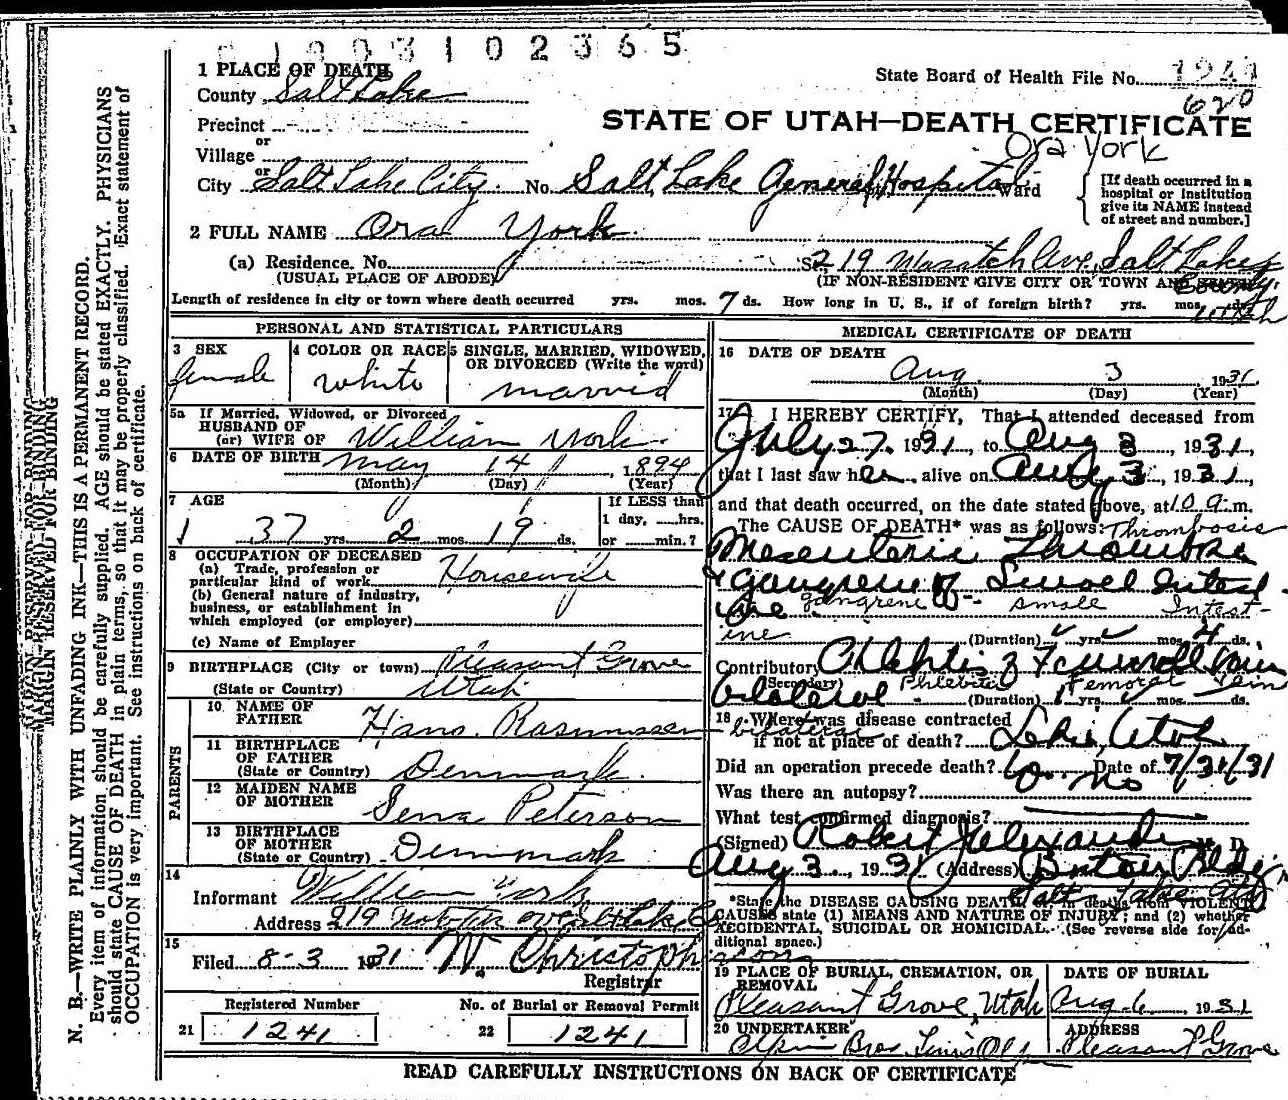 1003102365
1 PLACE OF DEATH
County Salt Lake
State Board of Health File No. 1941
620
Precinct
or
Village
STATE OF UTAH—DEATH CERTIFICATE
Ora York
or
City Salt Lake City. No. Salt Lake General Hospital Ward
[If death occurred in a
hospital or institution
give its NAME instead
of street and number.]
2 FULL NAME Ora York
(a) Residence. No. St. 219 Wasatch Ave. Salt Lake
(USUAL PLACE OF ABODE)
(IF NON-RESIDENT GIVE CITY OR TOWN AND
Utah
Length of residence in city or town where death occurred yrs. mos. 7 ds. How long in U. S., if of foreign birth? yrs. mos. ds.
PERSONAL AND STATISTICAL PARTICULARS
3 SEX
female
4 COLOR OR RACE
white
5 SINGLE, MARRIED, WIDOWED,
OR DIVORCED (Write the word)
married
5a If Married, Widowed, or Divorced
HUSBAND OF
(or) WIFE OF William York
6 DATE OF BIRTH May 14, 1894
(Month) (Day) (Year)
7 AGE
37 yrs. 2 mos. 19 ds.
If LESS than
1 day, hrs.
or min.?
8 OCCUPATION OF DECEASED
(a) Trade, profession or
particular kind of work Housewife
(b) General nature of industry,
business, or establishment in
which employed (or employer)
(c) Name of Employer
9 BIRTHPLACE (City or town) Pleasant Grove
(State or Country) Utah
PARENTS
10 NAME OF
FATHER Hans Rasmussen
11 BIRTHPLACE
OF FATHER
(State or Country) Denmark
12 MAIDEN NAME
OF MOTHER Sena Peterson
13 BIRTHPLACE
OF MOTHER
(State or Country) Denmark
14
Informant William York
Address 219
15
Filed 8-3 1931 W. Christoph
Registrar
Registered Number
21 1241
No. of Burial or Removal Permit
22 1241
MEDICAL CERTIFICATE OF DEATH
16 DATE OF DEATH
Aug. 3 1931
(Month) (Day) (Year)
17 I HEREBY CERTIFY, That I attended deceased from
July 27, 1931, to Aug 3, 1931,
that I last saw her alive on Aug 3, 1931,
and that death occurred, on the date stated above, at 10 a. m.
The CAUSE OF DEATH* was as follows: Thrombosis
Mesenteric Thrombosis
& Gangrene of Small Intest-
ine gangrene small Intest-
ine
(Duration) yrs. mos. 4 ds.
Contributory Phlebitis of Femoral Vein
(Secondary) Phlebitis Femoral Vein
bilateral (Duration) 1 yrs. mos. ds.
bilateral
18 Where was disease contracted
if not at place of death? Lehi, Utah
Did an operation precede death? Date of 7/31/31
Was there an autopsy? No
What test confirmed diagnosis?
(Signed) Robert Alexander M. D.
Aug 3, 1931 (Address) Bldg
Salt Lake City
*State the DISEASE CAUSING DEATH, or in deaths from VIOLENT
CAUSES state (1) MEANS AND NATURE OF INJURY; and (2) whether
ACCIDENTAL, SUICIDAL OR HOMICIDAL. (See reverse side for ad-
ditional space.)
19 PLACE OF BURIAL, CREMATION, OR
REMOVAL
Pleasant Grove, Utah
DATE OF BURIAL
Aug. 6 1931
20 UNDERTAKER
Bros.
ADDRESS
Pleasant Grove
READ CAREFULLY INSTRUCTIONS ON BACK OF CERTIFICATE
MARGIN RESERVED FOR BINDING
N. B.—WRITE PLAINLY WITH UNFADING INK—THIS IS A PERMANENT RECORD.
Every item of information should be carefully supplied. AGE should be stated EXACTLY. PHYSICIANS
should state CAUSE OF DEATH in plain terms, so that it may be properly classified. Exact statement of
OCCUPATION is very important. See instructions on back of certificate.